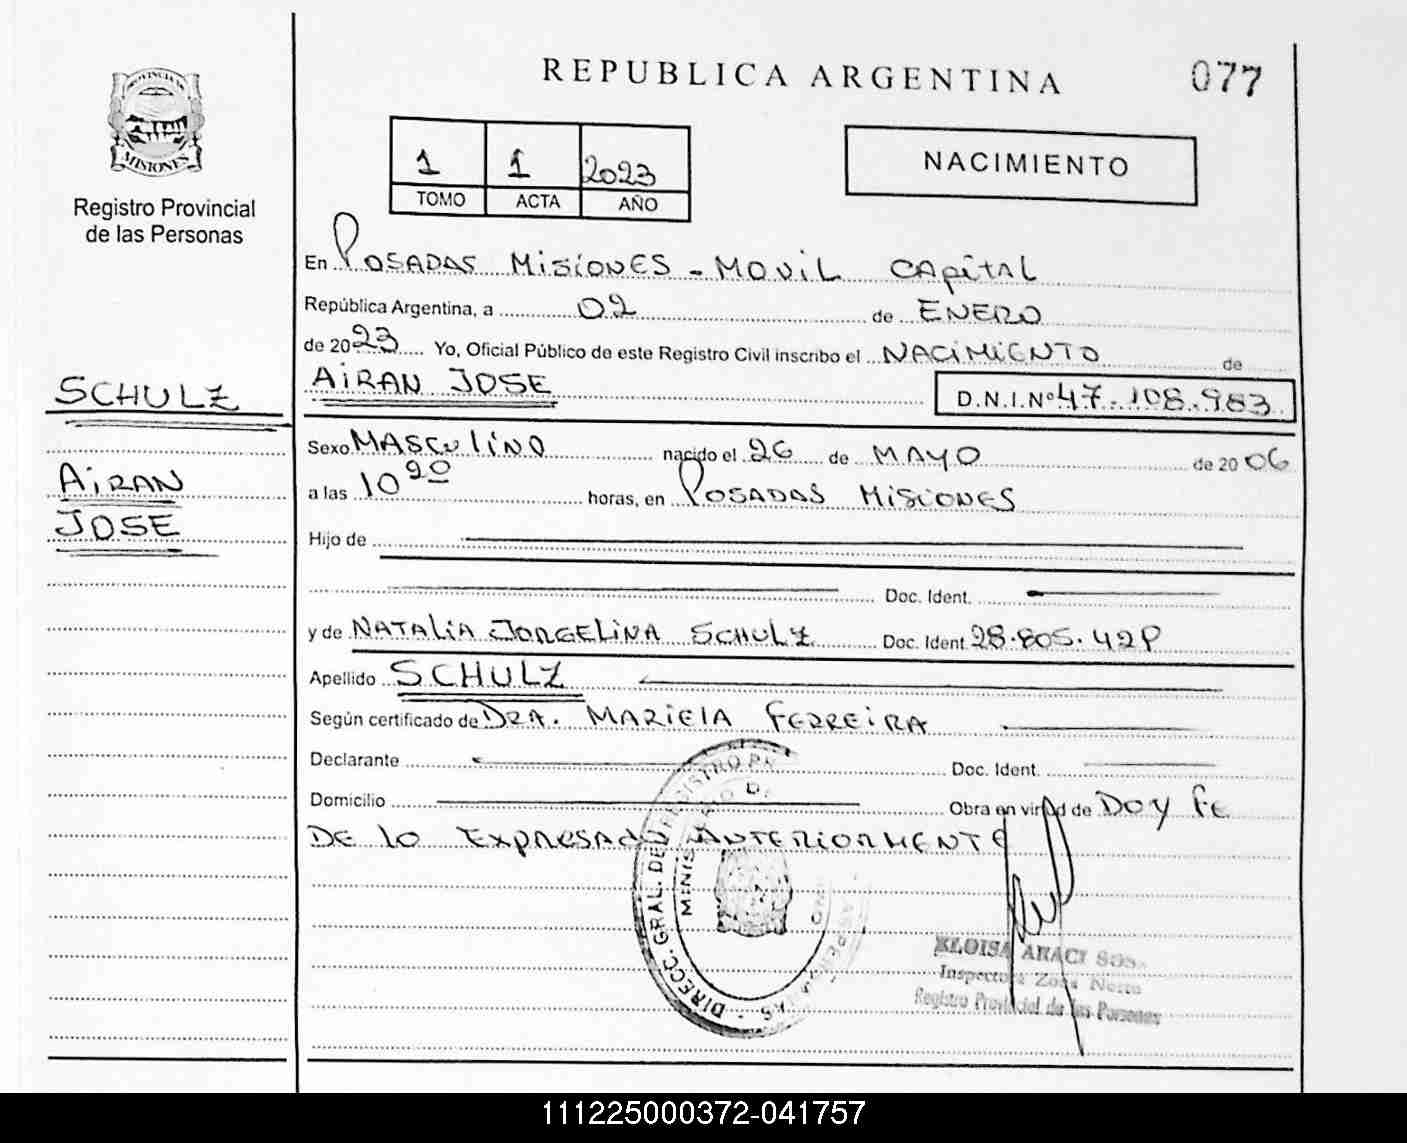 REPUBLICA ARGENTINA
077
PROVINCIA DE
MISIONES
Registro Provincial
de las Personas
1 1 2023
TOMO ACTA AÑO
NACIMIENTO
En POSADAS MISIONES - MOVIL CAPITAL
República Argentina, a 02 de ENERO
de 2023 Yo, Oficial Público de este Registro Civil inscribo el NACIMIENTO de
AIRAN JOSE D.N.I.Nº 47.108.983
SCHULZ
AIRAN
JOSE
Sexo MASCULINO nacido el 26 de MAYO de 2006
a las 10 20 horas, en POSADAS MISIONES
Hijo de
Doc. Ident.
y de NATALIA JORGELINA SCHULZ Doc. Ident. 28.805.42
Apellido SCHULZ
Según certificado de DRA. MARIELA FERREIRA
Declarante Doc. Ident.
Domicilio Obra en virtud de DOY FE
DE LO EXPRESADO ANTERIORMENTE
DIRECC. GRAL. DEL REGISTRO
MINISTERIO
ELOISA ARACI SOSA
Inspectora Zona Norte
Registro Provincial de las Personas
111225000372-041757